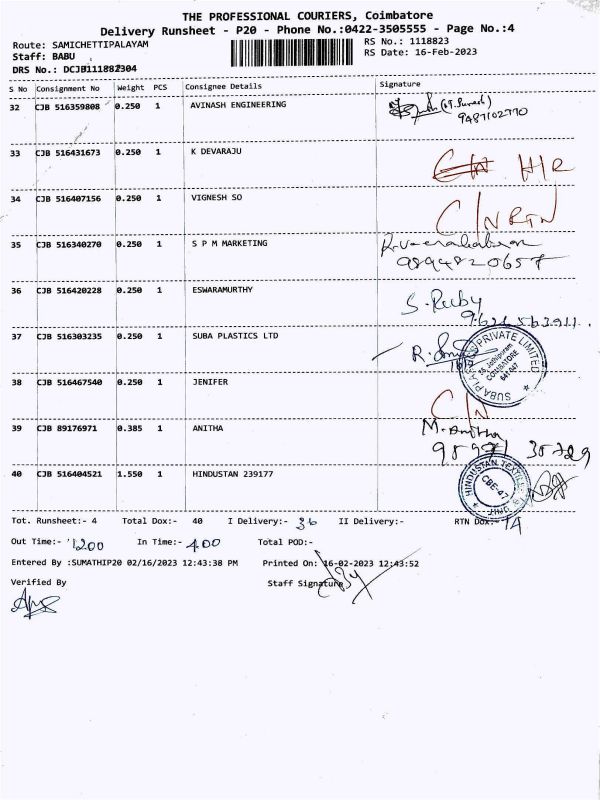 THE PROFESSIONAL COURIERS, Coimbatore
Delivery Runsheet - P20 - Phone No.:0422-3505555 - Page No.:4
Route: SAMICHETTIPALAYAM RS No.: 1118823
Staff: BABU RS Date: 16-Feb-2023
DRS No.: DCJB1118823304
S No Consignment No Weight PCS Consignee Details Signature
32 CJB 516359808 0.250 1 AVINASH ENGINEERING
9487102770
33 CJB 516431673 0.250 1 K DEVARAJU
34 CJB 516407156 0.250 1 VIGNESH SO C/N RTN
35 CJB 516340270 0.250 1 S P M MARKETING
9894820657
36 CJB 516420228 0.250 1 ESWARAMURTHY S. Ruby
37 CJB 516303235 0.250 1 SUBA PLASTICS LTD
SUBA PLASTICS PRIVATE LIMITED
COIMBATORE
641 047
38 CJB 516467540 0.250 1 JENIFER C/N
39 CJB 89176971 0.385 1 ANITHA M. Anitha
40 CJB 516404521 1.550 1 HINDUSTAN 239177
HINDUSTAN TEXTILE
CBE-47
Tot. Runsheet:- 4 Total Dox:- 40 I Delivery:- 36 II Delivery:- RTN Dox:- 14
Out Time:- 1200 In Time:- 400 Total POD:-
Entered By :SUMATHIP20 02/16/2023 12:43:38 PM Printed On: 16-02-2023 12:43:52
Verified By Staff Signature